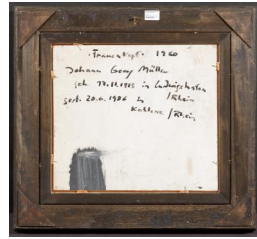 "Frauenkopf" 1960
Johann Georg Müller
geb. 1913 in Ludwigshafen
/Rhein
gest. 20.6.1986 in
Koblenz/Rhein